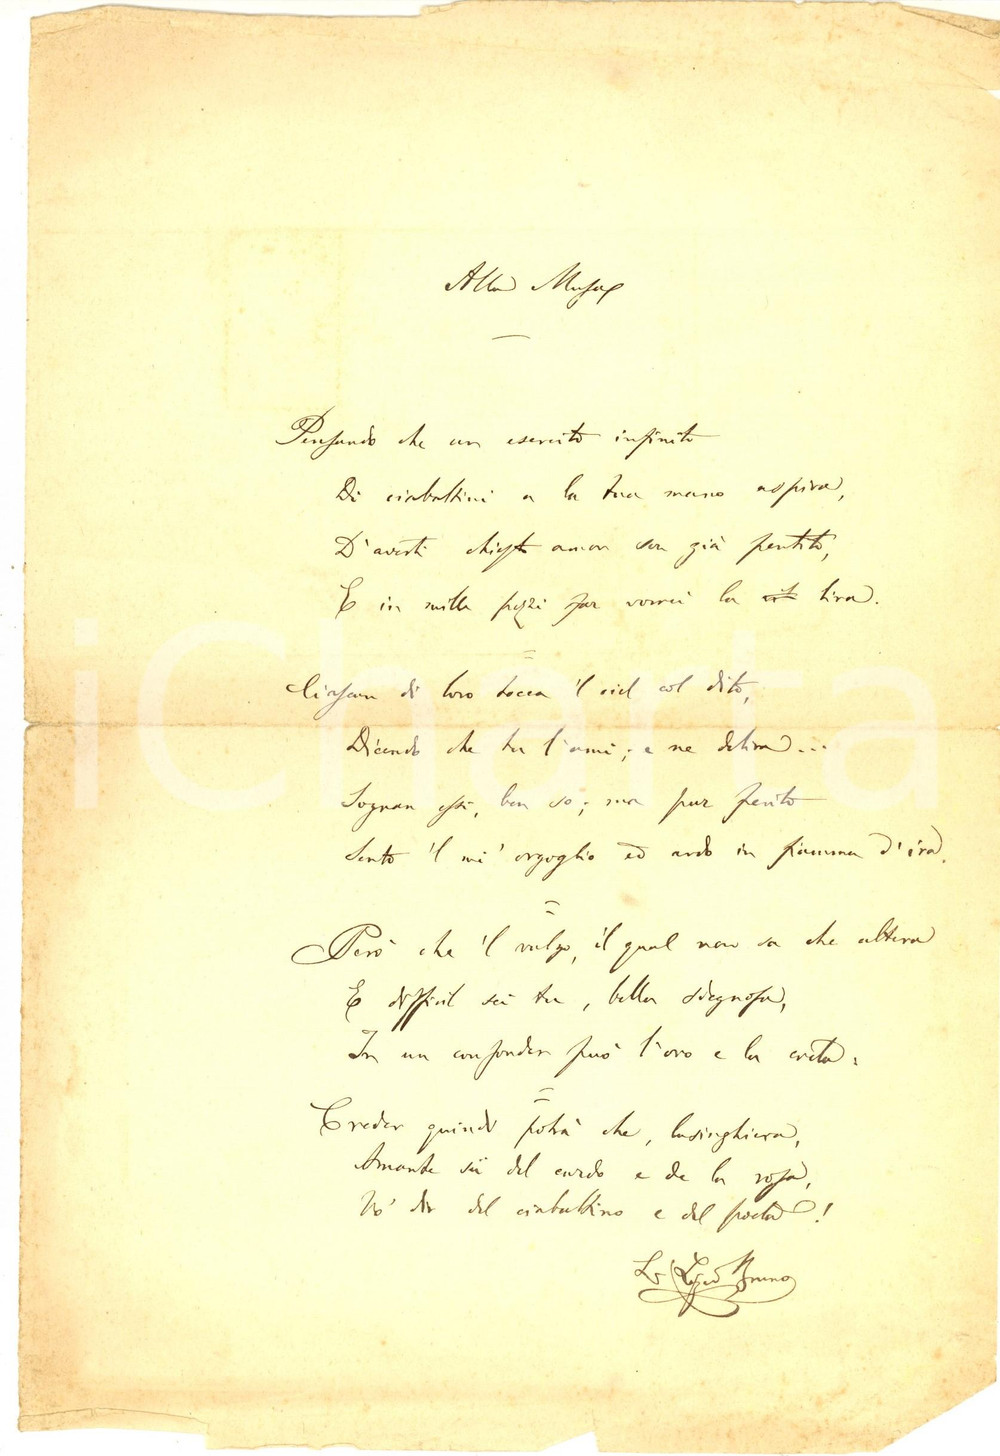 Alla Musa
Pensando che un esercito infinito
Di ciabattini a la tua mano aspira,
D'averti chiesto amor son già pentito,
E in mille pezzi far vorrei la lira.
Ciascun di loro tocca il ciel col dito,
Dicendo che tu l'ami; e ne delira...
Sognan essi, ben so; ma pur ferito
Sento 'l mi' orgoglio ed ardo in fiamma d'ira.
Però che 'l vulgo, il qual non sa che altera
E difficil sei tu, bella sdegnosa,
In un confonder può l'oro e la creta:
Creder quindi potrà che, lusinghiera,
Amante sii del cardo e de la rosa,
Vo' dir del ciabattino e del poeta!
Bruno
iCharta